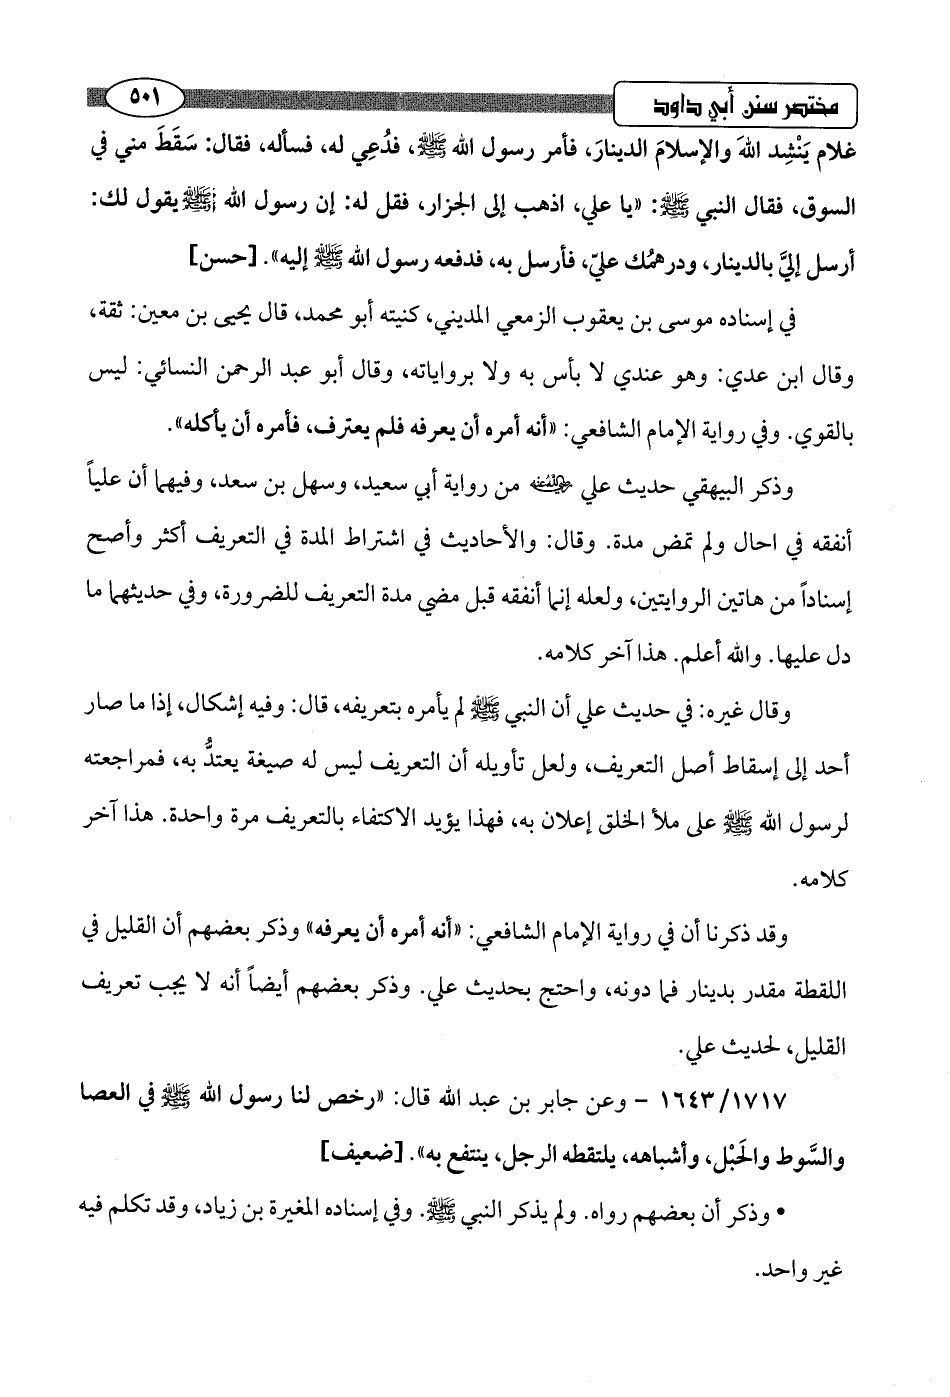 مختصر سنن أبي داود ٥٠١
غلام يَنْشِد اللهَ والإسلامَ الدينارَ، فأمر رسول الله ﷺ، فدُعِي له، فسأله، فقال: سَقَطَ مني في
السوق، فقال النبي ﷺ: «يا علي، اذهب إلى الجزار، فقل له: إن رسول الله ﷺ يقول لك:
أرسل إليَّ بالدينار، ودرهمُك عليّ، فأرسل به، فدفعه رسول الله ﷺ إليه». [حسن]
في إسناده موسى بن يعقوب الزمعي المديني، كنيته أبو محمد، قال يحيى بن معين: ثقة،
وقال ابن عدي: وهو عندي لا بأس به ولا برواياته، وقال أبو عبد الرحمن النسائي: ليس
بالقوي. وفي رواية الإمام الشافعي: «أنه أمره أن يعرفه فلم يعترف، فأمره أن يأكله».
وذكر البيهقي حديث علي رضي الله عنه من رواية أبي سعيد، وسهل بن سعد، وفيهما أن علياً
أنفقه في احال ولم تمض مدة. وقال: والأحاديث في اشتراط المدة في التعريف أكثر وأصح
إسناداً من هاتين الروايتين، ولعله إنما أنفقه قبل مضي مدة التعريف للضرورة، وفي حديثهما ما
دل عليها. والله أعلم. هذا آخر كلامه.
وقال غيره: في حديث علي أن النبي ﷺ لم يأمره بتعريفه، قال: وفيه إشكال، إذا ما صار
أحد إلى إسقاط أصل التعريف، ولعل تأويله أن التعريف ليس له صيغة يعتدُّ به، فمراجعته
لرسول الله ﷺ على ملأ الخلق إعلان به، فهذا يؤيد الاكتفاء بالتعريف مرة واحدة. هذا آخر
كلامه.
وقد ذكرنا أن في رواية الإمام الشافعي: «أنه أمره أن يعرفه» وذكر بعضهم أن القليل في
اللقطة مقدر بدينار فما دونه، واحتج بحديث علي. وذكر بعضهم أيضاً أنه لا يجب تعريف
القليل، لحديث علي.
١٦٤٣/١٧١٧ - وعن جابر بن عبد الله قال: «رخص لنا رسول الله ﷺ في العصا
والسَّوط والحَبْل، وأشباهه، يلتقطه الرجل، ينتفع به». [ضعيف]
• وذكر أن بعضهم رواه. ولم يذكر النبي ﷺ. وفي إسناده المغيرة بن زياد، وقد تكلم فيه
غير واحد.